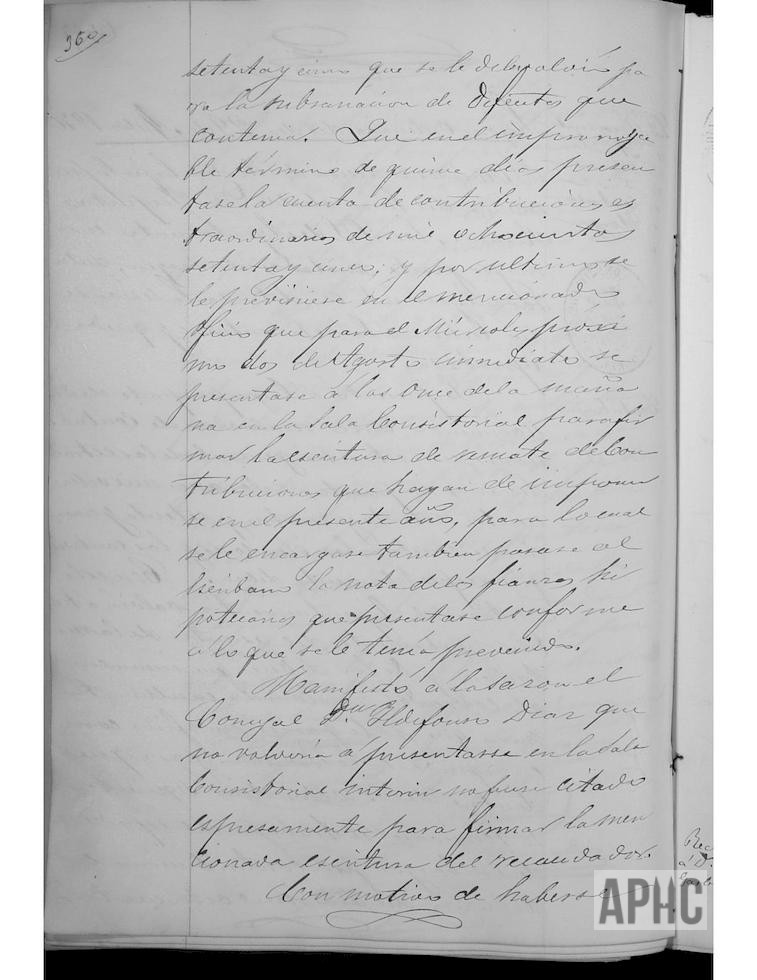 360
setenta y cinco que se le debolvió pa
ra la subsanacion de defectos que
contenia. Que en el improrroga
ble término de quince dias presen
tase la cuenta de contribuciones es
traordinarias de mil ochocientos
setenta y cinco; y por ultimo se
le previniese en el mencionado
oficio que para el Miércoles próxi
mo dos de Agosto inmediato se
presentase á las once de la maña
na en la Sala Consistorial para fir
mar la escritura de remate de Con
tribuciones que hayan de imponer
se en el presente año, para lo cual
se le encargase tambien pasase al
Escribano la nota de las fianzas hi
potecarias que presentase conforme
á lo que se le tenía prevenido.
Manifestó á la sazon el
Concejal Dn. Ildefonso Diaz que
no volvería a presentarse en la Sala
Consistorial interin no fuese citado
espresamente para firmar la men
cionada escritura del recaudador.
Con motivo de haberse
APHC